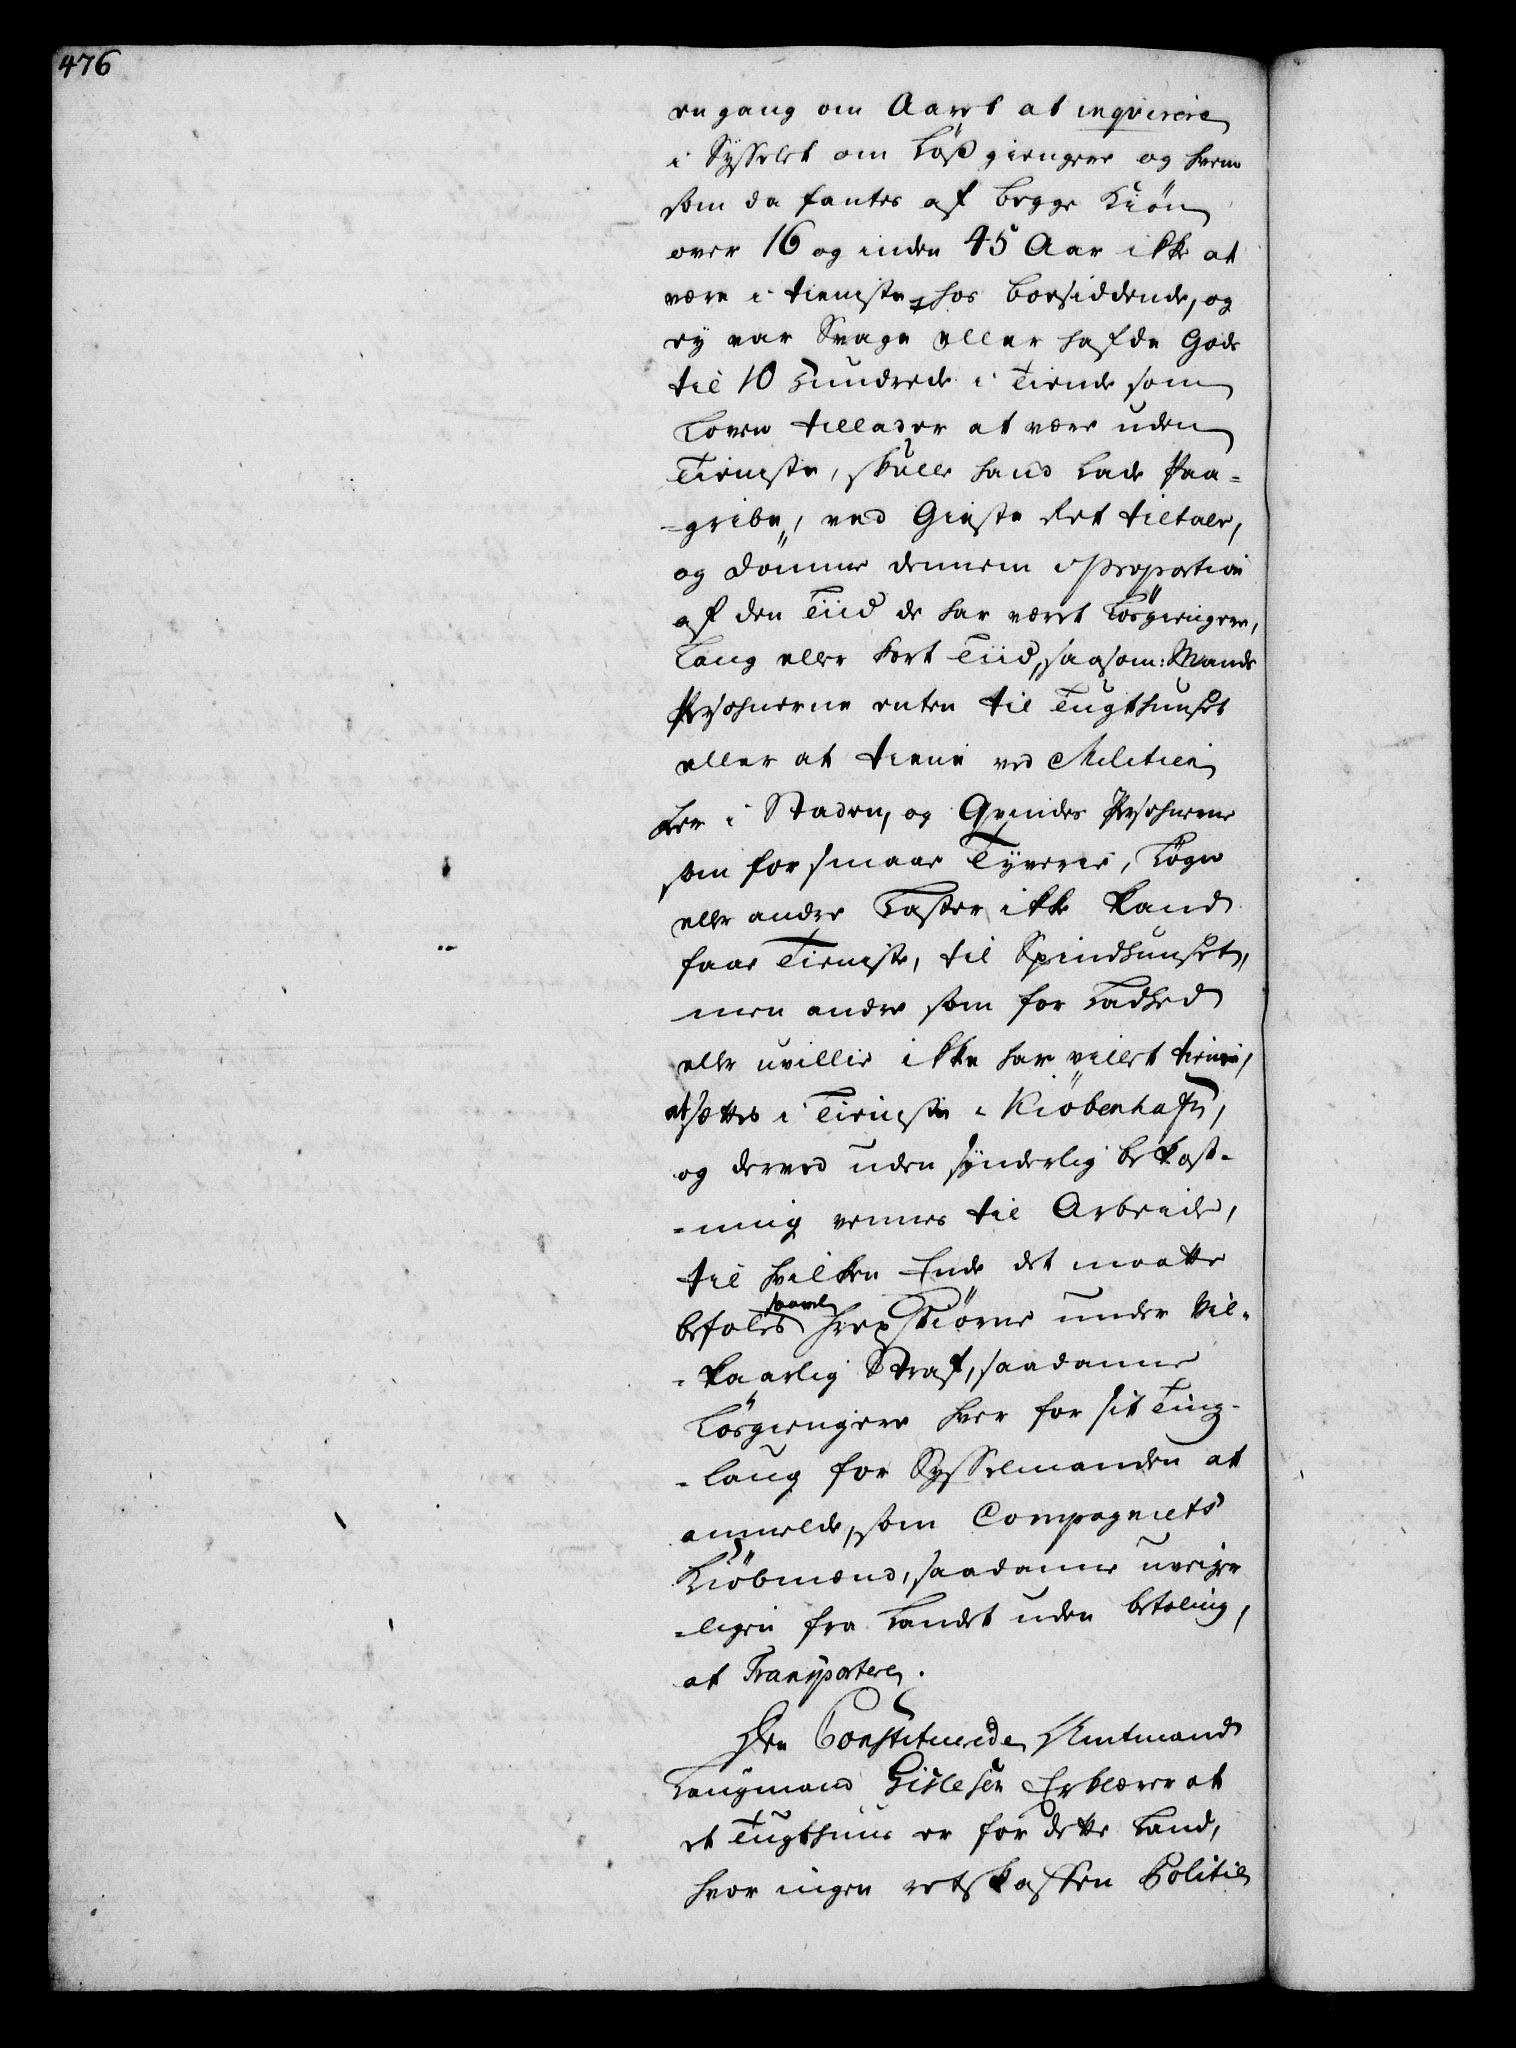 476
en gang om Aaret at inqvirere
i Sysselet om Løsgiengere og hvem
som da fantes af begge Kiøn
over 16 og inden 45 Aar ikke at
være i tieniste hos boesiddende, og
ey var Svage eller hafde Gods
til 10 Hundrede i Tiende som
Loven tillader at være uden
Tieniste, skulle hand lade Paa-
-gribe, ved Gieste Ret tiltale,
og dømme dennem i Proportion
af den Tiid de har været Løsgiengere,
Lang eller kort Tiid, saasom: Mands
Persohnerne enten til Tugthuuset
eller at tiene ved Militien
her i Staden, og Qvindes Persohnerne
som for smaae Tyverie, Løgn
eller andre Laster ikke kand
faae Tieniste, til Spindhuuset,
men andre som for Ladhed
eller uvillie ikke har villet tiene,
at sættes i Tieniste i Kiøbenhafn,
og derved uden synderlig bekost-
-ning vennes til Arbeide,
til hvilken Ende det maatte
befales saavel Hrepstiørne under vil-
-kaarlig Straf, saadanne
Løsgiengere hver for sit Ting-
-laug for Sysselmanden at
anmelde, som Compagniets
Kiøbmænd, saadanne uveiger
-ligen fra Landet uden betaling,
at Transportere.
Den Constituerede Amtmand
Laugmand Gislesen Erklærer at
et Tugthuus er for dette Land,
hvor ingen retskaffen Politie